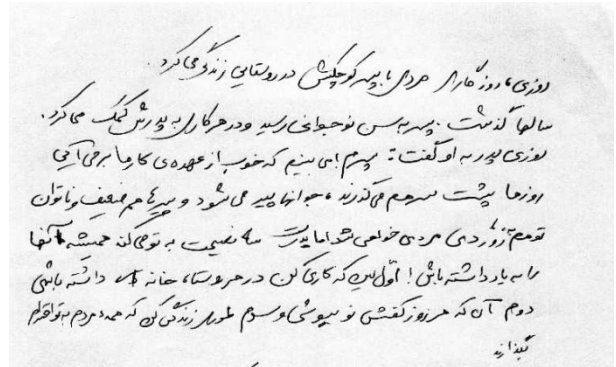 روزی، روزگاری مردی با پسر کوچکش در روستایی زندگی می‌کرد.
سالها گذشت. پسر به سن نوجوانی رسید و در هر کاری به پدرش کمک می‌کرد.
روزی پدر به او گفت: پسرم! می بینم که خوب از عهده‌ی کارها برمی آیی
روزها پشت سر هم می‌گذرند، جوانها پیر می شود و پیرها هم ضعیف و ناتوان
تو هم به زودی مردی خواهی شد اما پدرت سه نصیحت به تو می‌کند همیشه آنها
را به یاد داشته باش! اوّل این که کاری کن در هر روستا، خانه ای داشته باشی
دوم آن که هر روز کفش نو بپوشی و سوم طوری زندگی کن که همه مردم به تو احترام
بگذارند